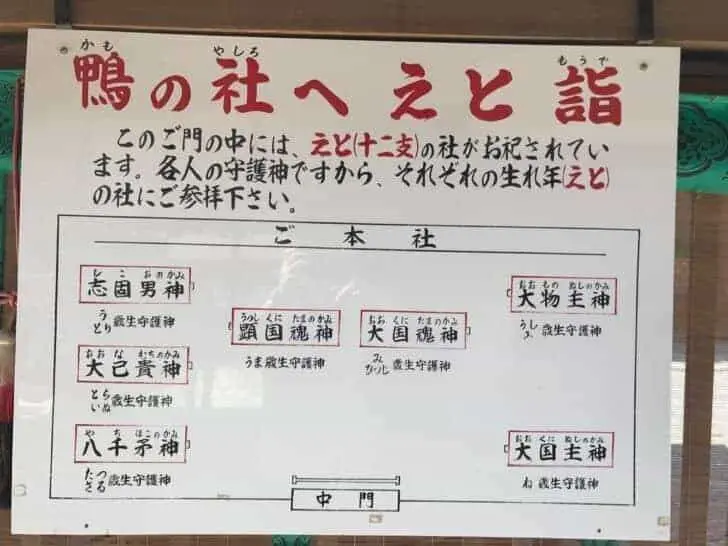 かも やしろ もうで
鴨の社へえと詣
このご門の中には、えと(十二支)の社がお祀されてい
ます。各人の守護神ですから、それぞれの生れ年(えと)
の社にご参拝下さい。
ご本社
しこおのかみ
志固男神
う
とり歳生守護神
おおなむちのかみ
大己貴神
とら
いぬ歳生守護神
やちほこのかみ
八千矛神
たつ
さる歳生守護神
うつしくにたまのかみ
顕国魂神
うま歳生守護神
おおくにたまのかみ
大国魂神
み
ひつじ歳生守護神
おおものぬしのかみ
大物主神
うし
歳生守護神
おおくにぬしのかみ
大国主神
ね歳生守護神
中門